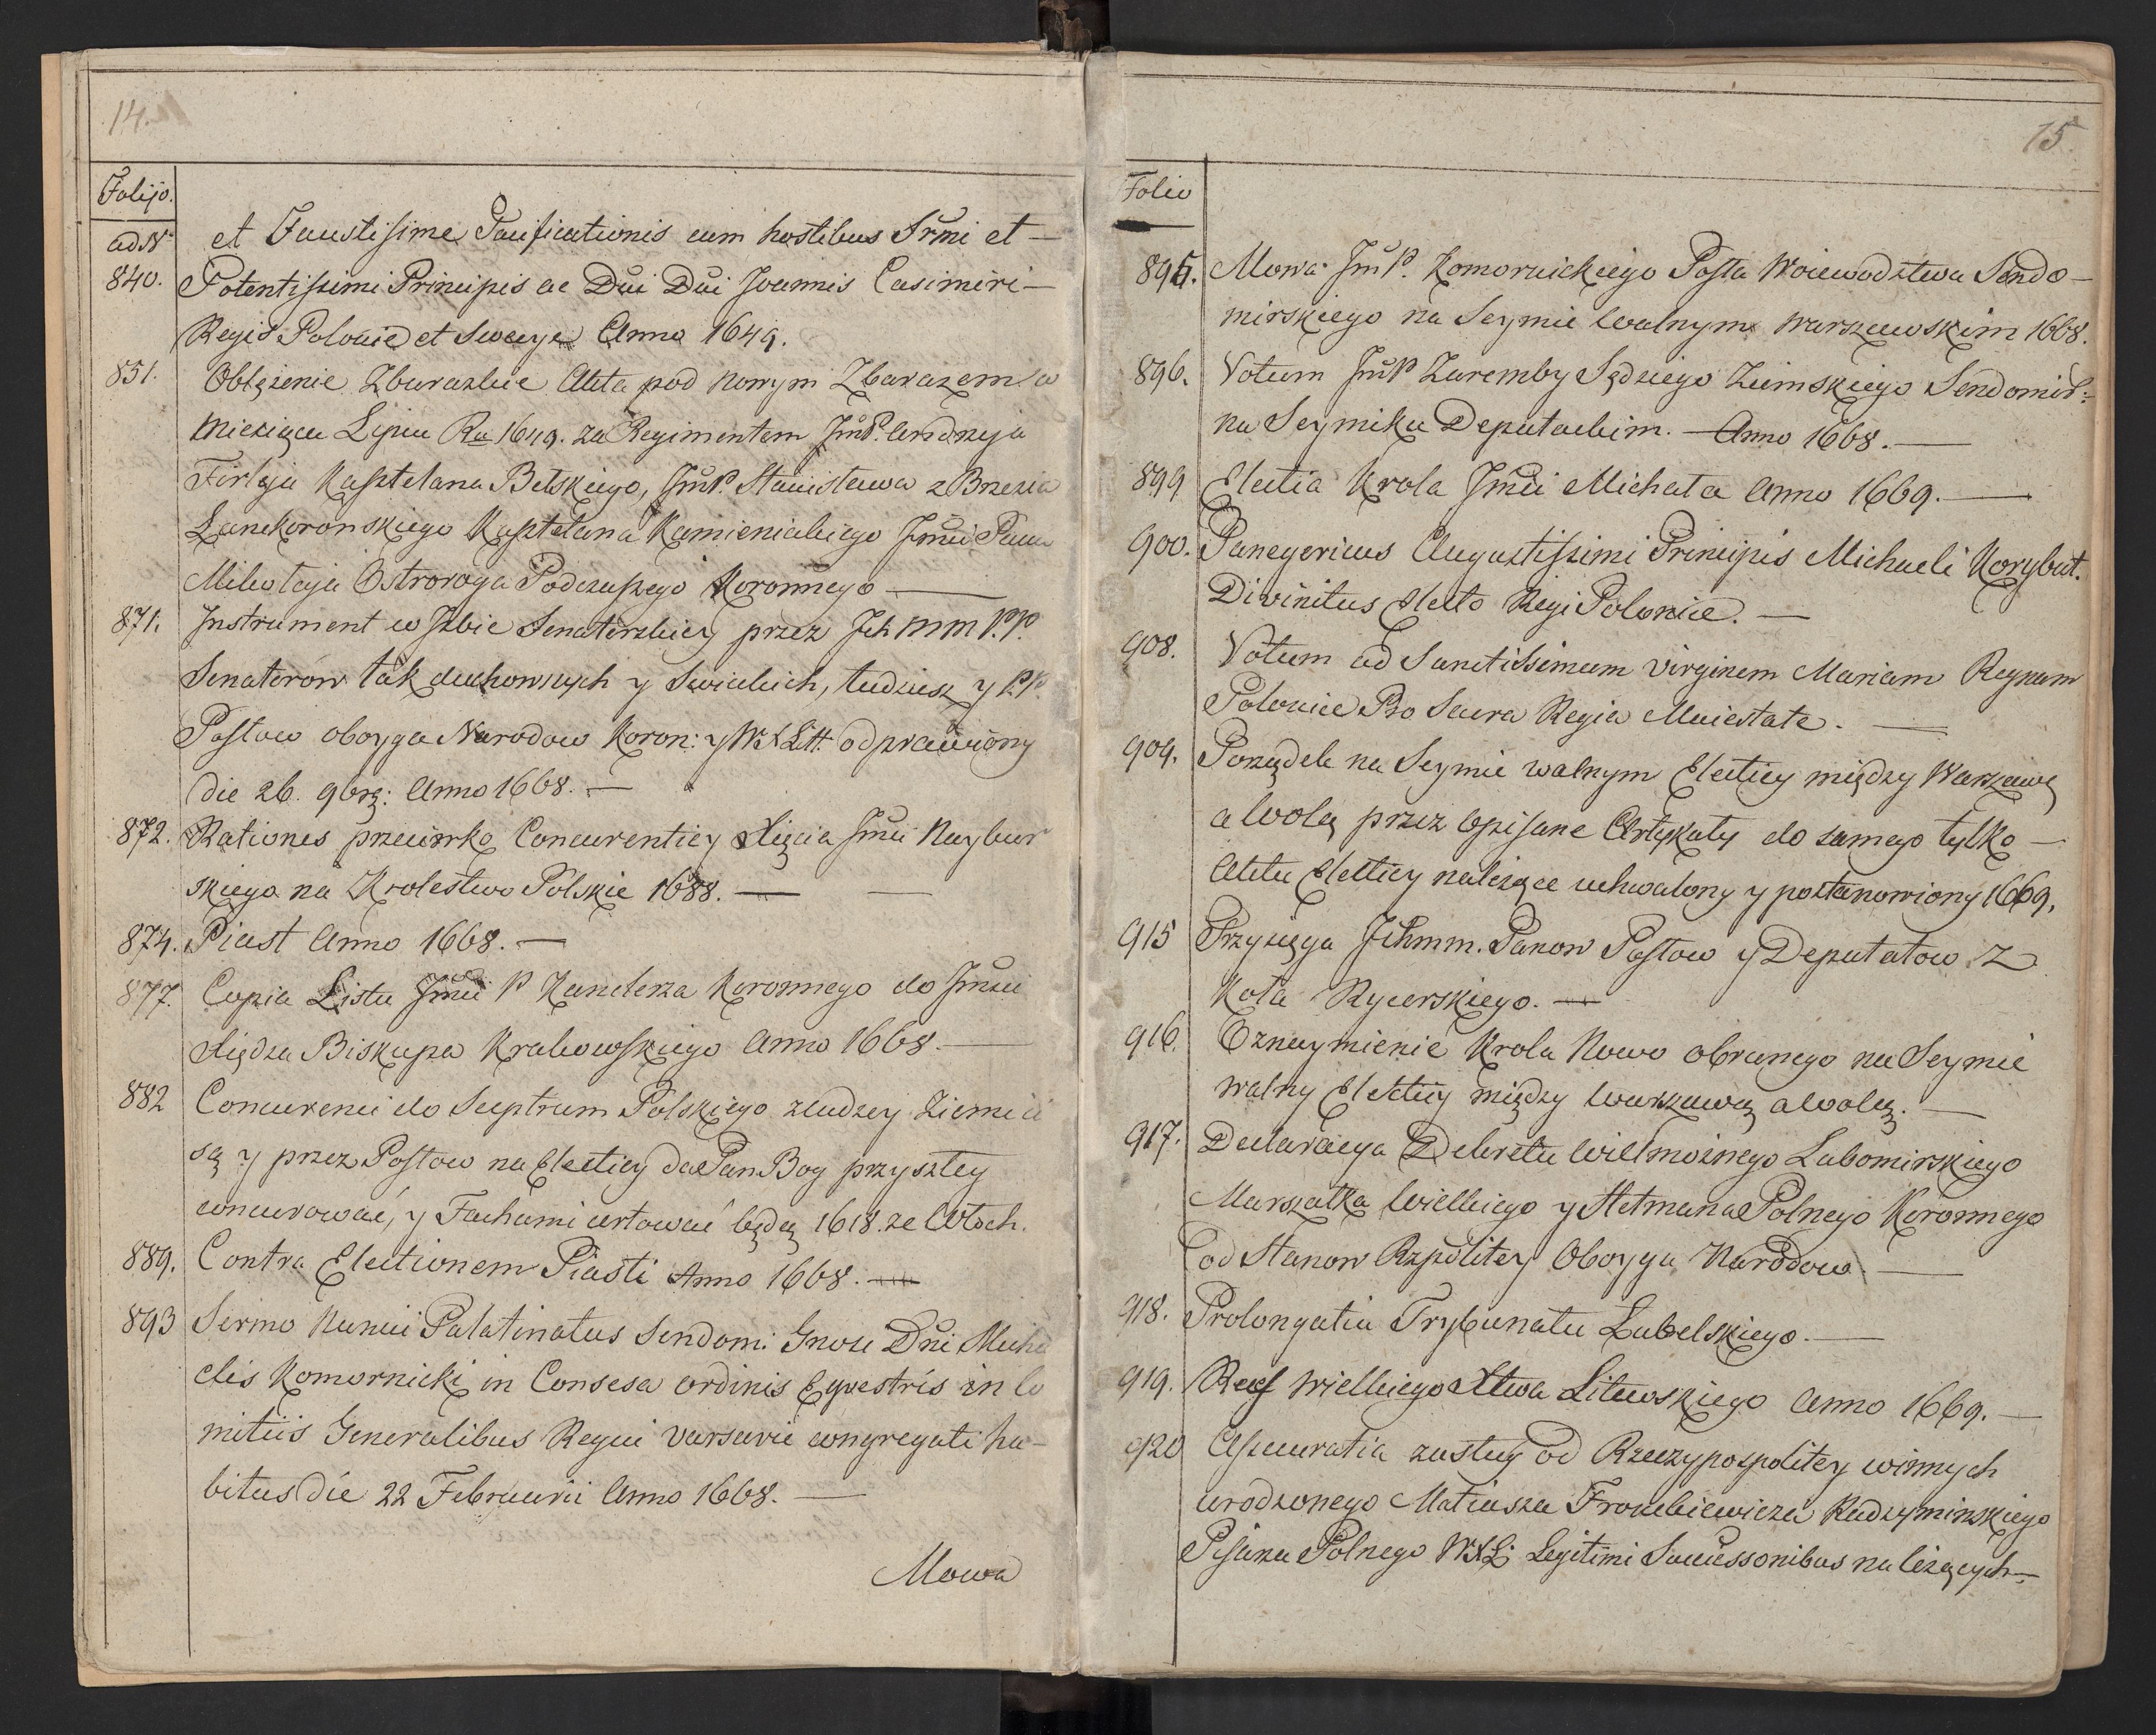 14.
Folijo.
ad N
et Faustissime Pacificationis cum hostibus Srmi et —
840. Potentissimi Principis ac Dni Dni Joannis Casimiri —
Regis Polonie et Swecye Anno 1649.
851. Oblężenie Zbarazkie Akta pod Nowym Zbarazem w
Miesiącu Lipcu Ru 1649. za Regimentem JmP. Andrzeja
Firleja Kasztelana Belskiego, JmP. Stanisława z Brzezia
Lanckoronskiego Kasztelana Kamienickiego Jmci Pana
Mikołaja Ostroroga Podczaszego Koronnego —
871. Instrument w Izbie Senatorskiey przez Ich mm P.P.
Senatorow tak duchownych y Swieckich, tudziesz y P.P.
Posłow oboyga Narodow Koron: y WXLitt. odprawiony
die 26. 9brs: Anno 1668. —
872. Rationes przeciwko Concurentiey Xięcia Jmci Naybur
skiego na Krolestwo Polskie 1688. — —
874. Piast Anno 1668. —
877. Copia Listu Jmci P Kanclerza Koronnego do Jmsci
Xiędza Biskupa Krakowskiego Anno 1668. —
882 Concurenci do Sceptrum Polskiego z cudzey Ziemi ci
są y przez Posłow na Elekticy da Pan Bog przyszley
concurować, y Fachami certować będą 1618. ze Włoch.
889. Contra Electionem Piasti Anno 1668. —
893 Sermo Nuncii Palatinatus Sendom: Gnosi Dni Micha
elis Komornicki in Consesa ordinis Equestris in Co
mitiis Generalibus Regni Varsavie congregati ha-
bitus die 22 Februarii Anno 1668. —
Mowa
15.
Folio
895. Mowa JmP. Komornickiego Posła Woiewodztwa Sendo-
mirskiego na Seymie Walnym Warszawskim 1668.
896. Votum JmP Zaremby Sędziego Ziemskiego Sendomir:
na Seymiku Deputackim. — Anno 1668. —
899 Electia Krola Jmci Michała Anno 1669. —
900. Panegericus Augustissimi Principis Michaeli Korybut.
Divinitus Electo Regi Polonie. —
908. Votum ad Sanctissimum Virginem Mariam Regnam
Polonice Pro Sacra Regia Maiestate. —
909. Porządek na Seymie walnym Elekticy między Warszawą
a Wolą przez opisane Artykuły do samego tylko —
Aktu Elekticy należące uchwalony y postanowiony 1669.
915 Przysięga Ichmm. Panow Posłow y Deputatow Z
Koła Rycerskiego. —
916. Oznaymienie Krola Nowo obranego na Seymie
walny Elekticy między Warszawą a Wolą. —
917. Declaracya Dekretu Wielmożnego Lubomirskiego
Marszałka Wielkiego y Hetmana Polnego Koronnego
od Stanow Rzpolitey Oboyga Narodow. —
918. Prolongatia Trybunału Lubelskiego. —
919. Rees Wielkiego Xtwa Litewskiego Anno 1669. —
920 Assecuratia zasług od Rzeczypospolitey winnych
urodzonego Matiasza Fronckiewicza Radzyminskiego
Pisarza Polnego WXL: Legitimi Successonibus należących —